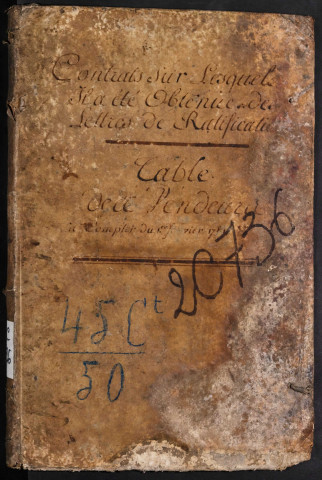 Contrats sur Lesquels
Il a été Obtenu des
Lettres de Ratification
Table
des Vendeurs
à Compter du 1er
20736
45 Ct
50